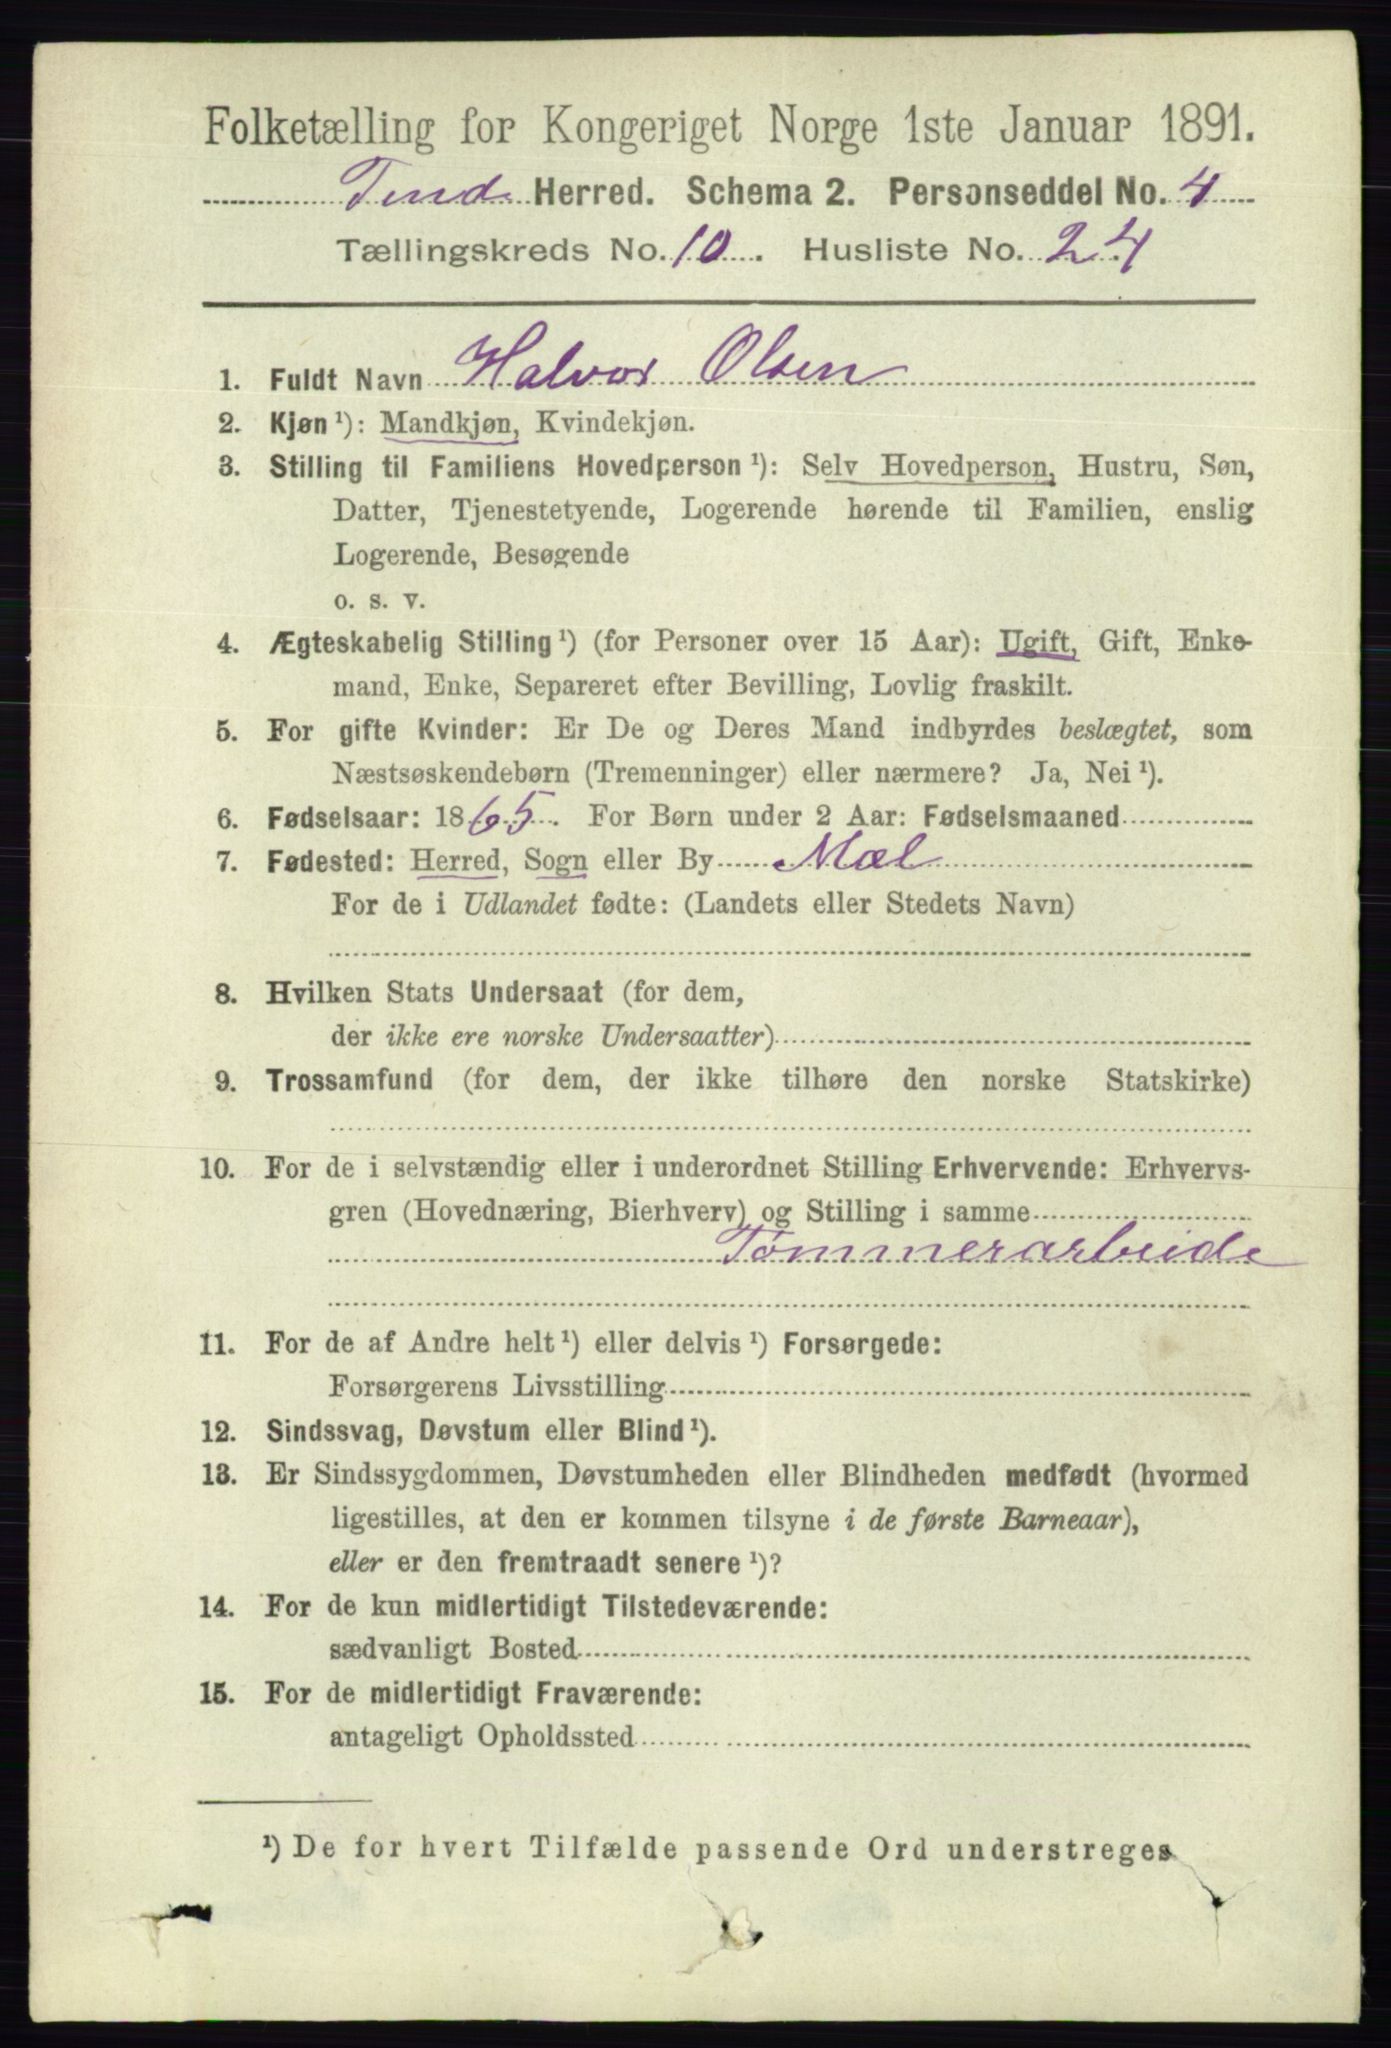 Folketælling for Kongeriget Norge 1ste Januar 1891.
Tind Herred. Schema 2. Personseddel No. 4
Tællingskreds No. 10. Husliste No. 24
1. Fuldt Navn Halvor Olsen
2. Kjøn ¹): Mandkjøn, Kvindekjøn.
3. Stilling til Familiens Hovedperson ¹): Selv Hovedperson, Hustru, Søn,
Datter, Tjenestetyende, Logerende hørende til Familien, enslig
Logerende, Besøgende
o. s. v.
4. Ægteskabelig Stilling ¹) (for Personer over 15 Aar): Ugift, Gift, Enke-
mand, Enke, Separeret efter Bevilling, Lovlig fraskilt.
5. For gifte Kvinder: Er De og Deres Mand indbyrdes beslægtet, som
Næstsøskendebørn (Tremenninger) eller nærmere? Ja, Nei ¹).
6. Fødselsaar: 1865. For Børn under 2 Aar: Fødselsmaaned
7. Fødested: Herred, Sogn eller By Mæl
For de i Udlandet fødte: (Landets eller Stedets Navn)
8. Hvilken Stats Undersaat (for dem,
der ikke ere norske Undersaatter)
9. Trossamfund (for dem, der ikke tilhøre den norske Statskirke)
10. For de i selvstændig eller i underordnet Stilling Erhvervende: Erhvervs-
gren (Hovednæring, Bierhverv) og Stilling i samme
Tømmerarbeide
11. For de af Andre helt ¹) eller delvis ¹) Forsørgede:
Forsørgerens Livsstilling
12. Sindssvag, Døvstum eller Blind ¹).
13. Er Sindssygdommen, Døvstumheden eller Blindheden medfødt (hvormed
ligestilles, at den er kommen tilsyne i de første Barneaar),
eller er den fremtraadt senere ¹)?
14. For de kun midlertidigt Tilstedeværende:
sædvanligt Bosted
15. For de midlertidigt Fraværende:
antageligt Opholdssted
¹) De for hvert Tilfælde passende Ord understreges